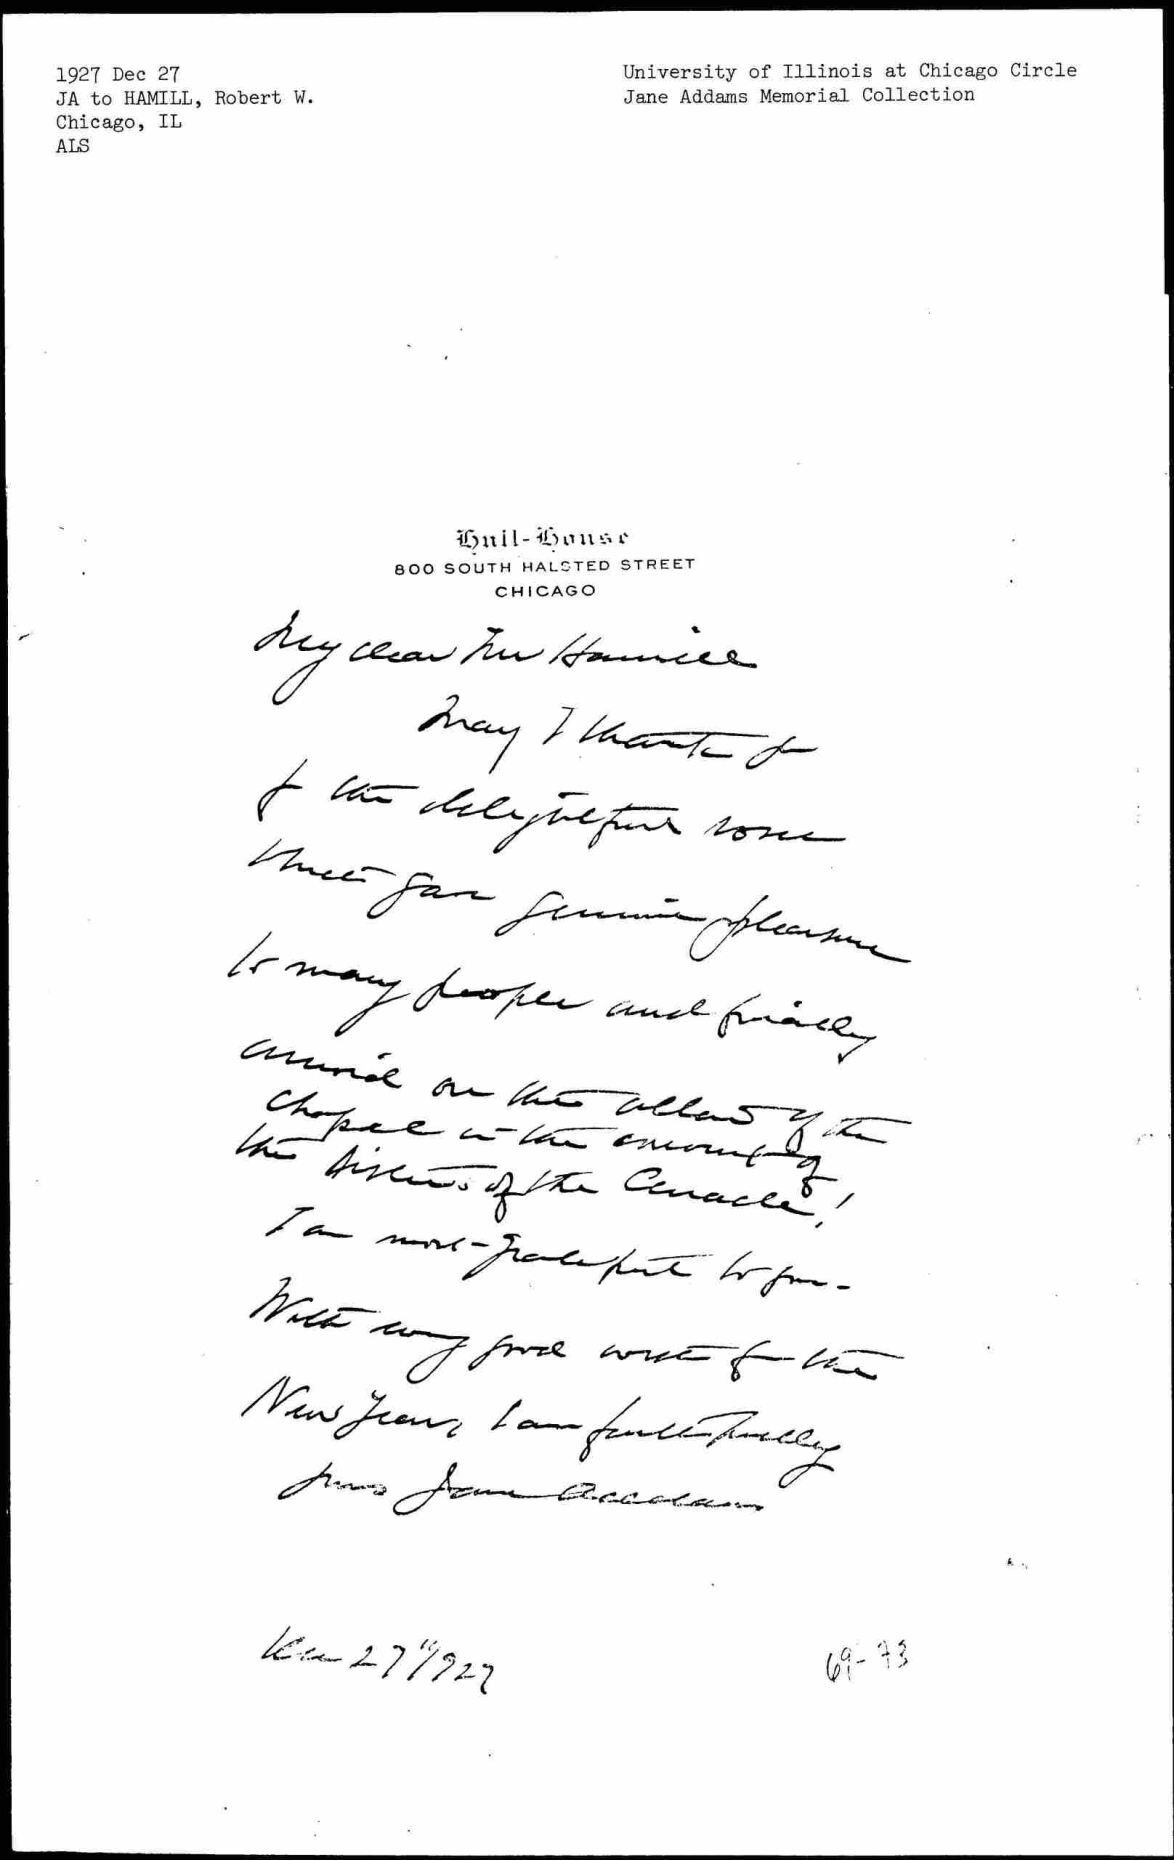 1927 Dec 27
JA to HAMILL, Robert W.
Chicago, IL
ALS
University of Illinois at Chicago Circle
Jane Addams Memorial Collection
Hull-House
800 SOUTH HALSTED STREET
CHICAGO
My dear Mr Hamill
May I thank you
for the delightful roses
that gave genuine pleasure
to many people and finally
arrived on the altar of the
chapel in the convent of
the Sisters of the Cenacle!
I am most grateful to you -
With every good wish for the
New Year, I am faithfully
yours Jane Addams
Dec 27" 1927
69-73